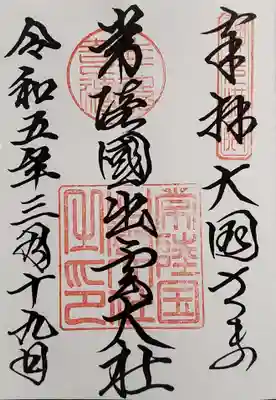 奉拝 大国さま
常陸國出雲大社
常陸国
令和五年三月十九日